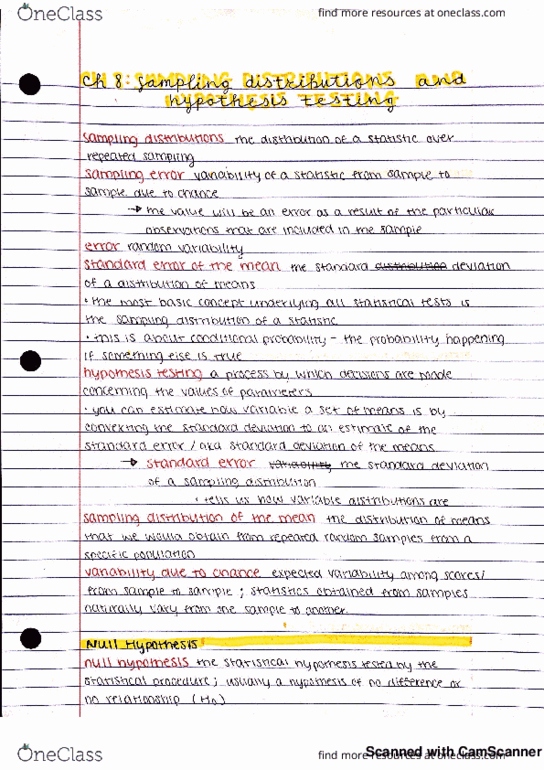 OneClass
find more resources at oneclass.com
Ch 8: Sampling distributions and
hypothesis testing
sampling distributions the distribution of a statistic over
repeated sampling
sampling error variability of a statistic from sample to
sample due to chance
→ the value will be an error as a result of the particular
observations that are included in the sample
error random variability
standard error of the mean the standard distribution deviation
of a distribution of means
• the most basic concept underlying all statistical tests is
the sampling distribution of a statistic
• this is about conditional probability - the probability happening
if something else is true
hypothesis testing a process by which decisions are made
concerning the values of parameters
• you can estimate how variable a set of means is by
converting the standard deviation to an estimate of the
standard error / aka standard deviation of the means
→ standard error variability the standard deviation
of a sampling distribution
• tells us how variable distributions are
sampling distribution of the mean the distribution of means
that we would obtain from repeated random samples from a
specific population
variability due to chance expected variability among scores/
from sample to sample ; statistics obtained from samples
naturally vary from one sample to another
Null Hypothesis
null hypothesis the statistical hypothesis tested by the
statistical procedure ; usually a hypothesis of no difference or
no relationship (H₀)
OneClass
find more resources at oneclass.com
Scanned with CamScanner